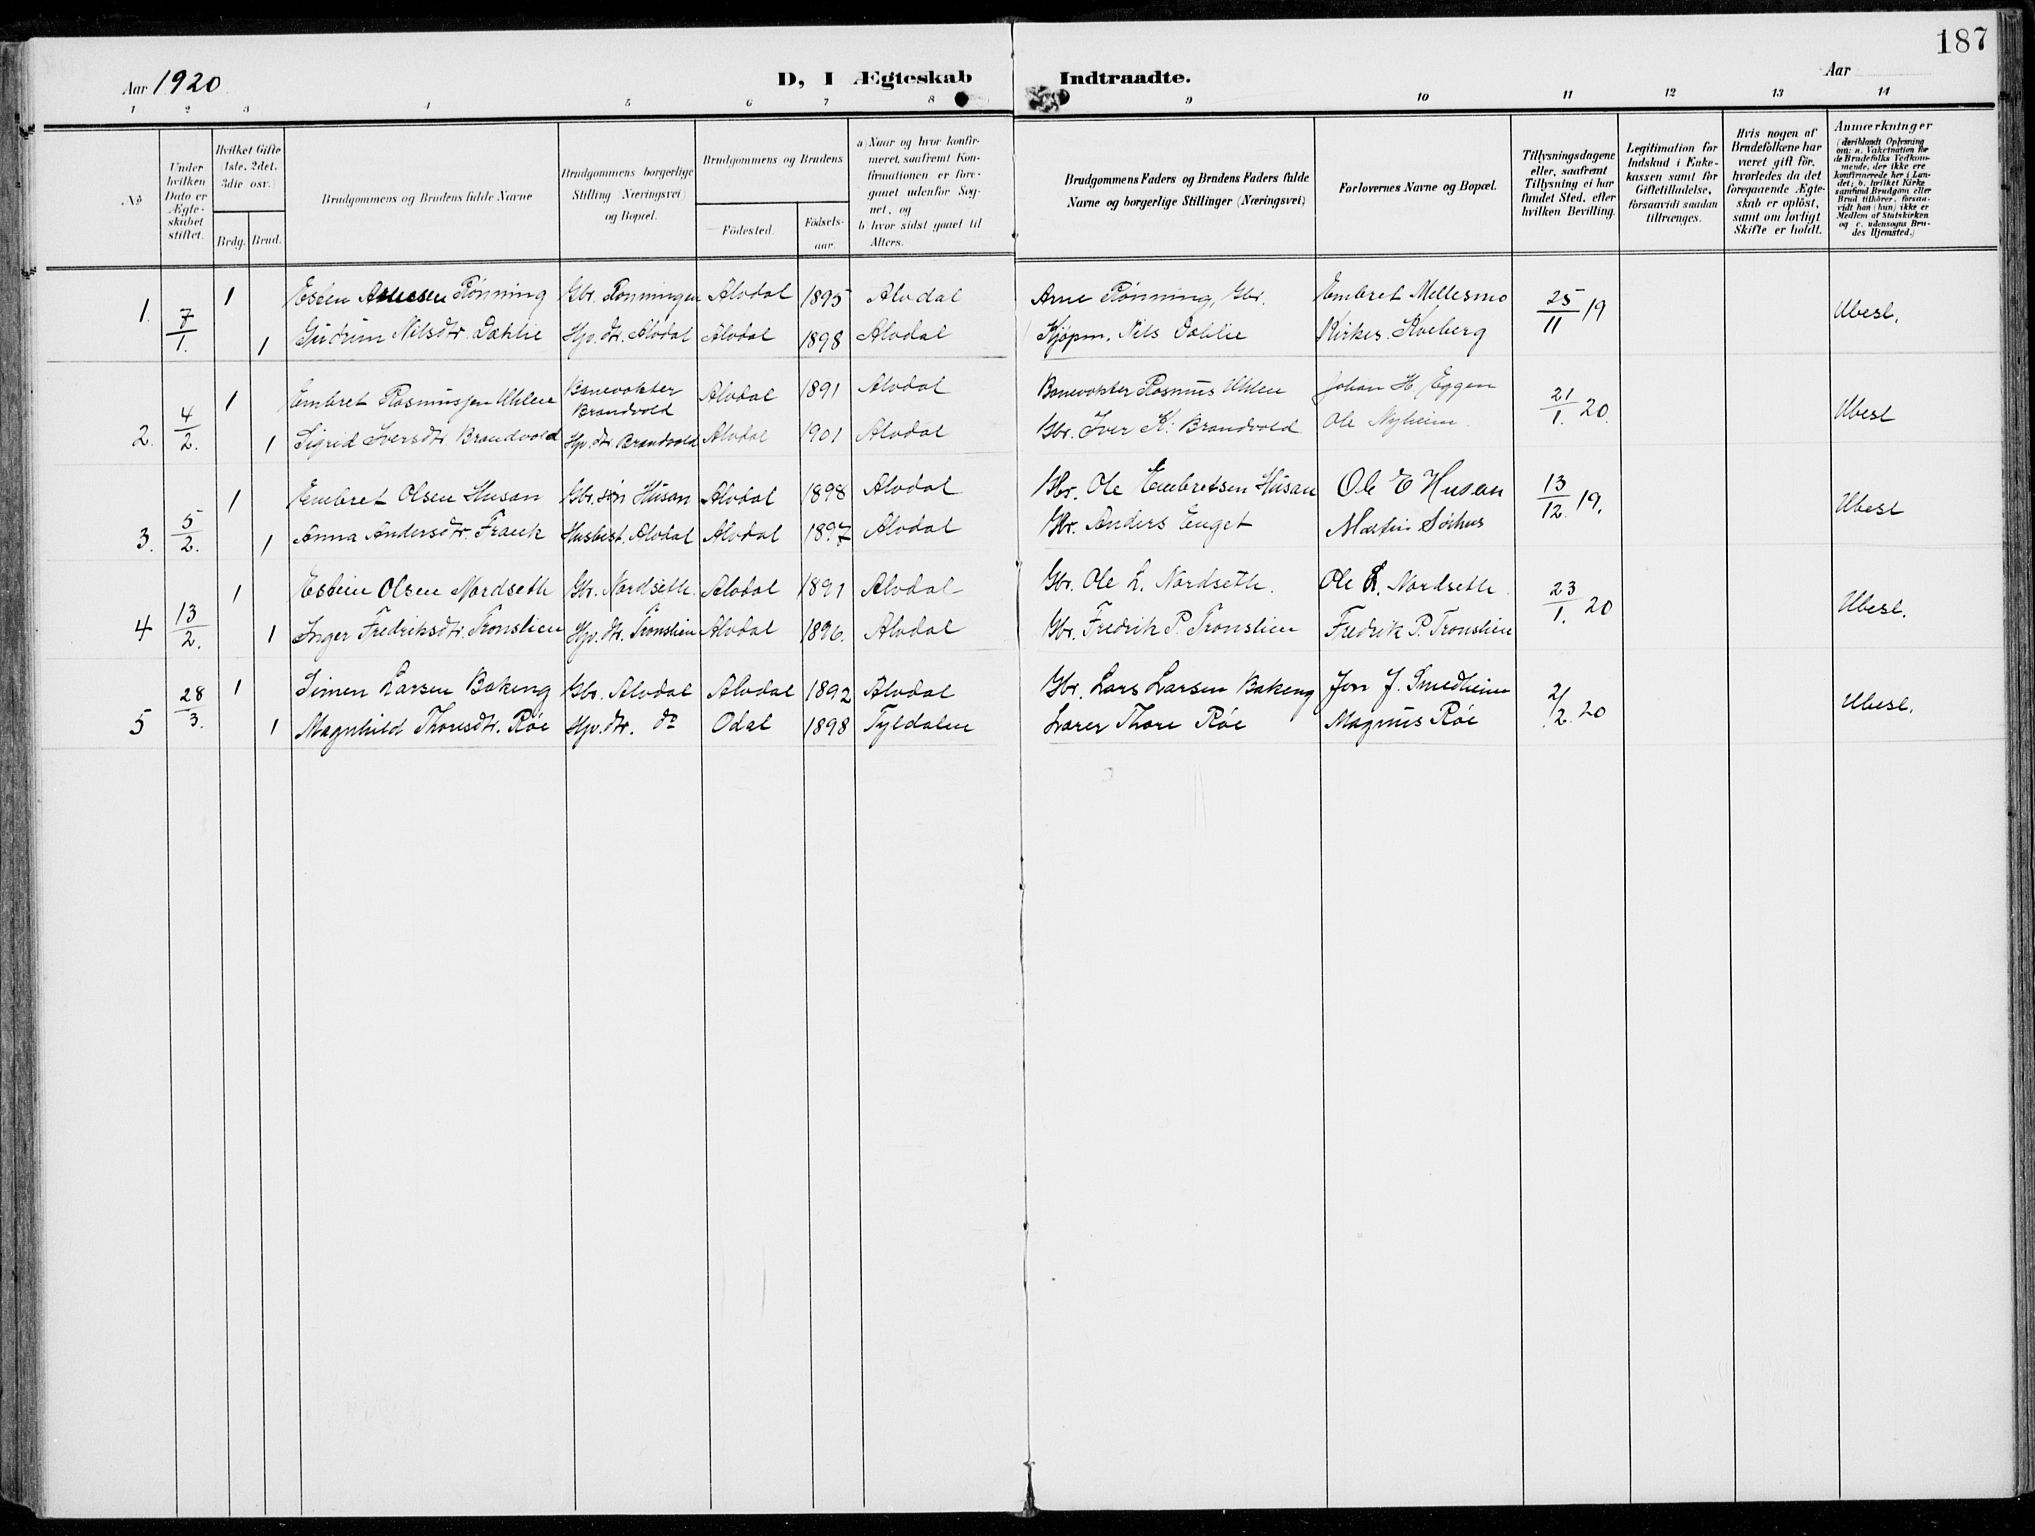 187
Aar 1920
D, I Ægteskab Indtraadte.
Aar
1 2 3 4 5 6 7 8 9 10 11 12 13 14
No
Under hvilken Dato er Ægteskabet stiftet.
Hvilket Gifte 1ste, 2det, 3die osv.)
Brdg. Brud.
Brudgommens og Brudens fulde Navne
Brudgommens borgerlige Stilling Næringsvei) og Bopæl.
Brudgommens og Brudens
Födested.
Födselsaar.
a) Naar og hvor konfirmeret, saafremt Konfirmationen er foregaaet udenfor Sognet, og
b hvor sidst gaaet til Alters.
Brudgommens Faders og Brudens Faders fulde Navne og borgerlige Stillinger (Næringsvei)
Forlovernes Navne og Bopæl.
Tillysningsdagene eller, saafremt Tillysning ei har fundet Sted, efter hvilken Bevilling.
Legitimation for Indskud i Enkekassen samt for Giftetilladelse, forsaavidt saadan tiltrænges.
Hvis nogen af Brudefolkene har været gift før, hvorledes da det foregaaende Ægteskab er oplöst, samt om lovligt Skifte er holdt.
Anmærkninger (deriblandt Oplysning om: a. Vakcination for de Brudefolks Vedkommende, der ikke ere konfirmerede her i Landet; b. hvilket Kirkesamfund Brudgom eller Brud tilhörer, forsaavidt han (hun) ikke er Medlem af Statskirken og c. udensogns Brudes Hjemsted.)
1. 7/1. 1 Esten Rönning Gbr. Rønningen Alvdal 1895 Alvdal Arne Rönning, Gbr. Embret Mellesmo 25/11 19 Ubesl.
1 Gudrun Nilsdtr. Dæhlie Hjv. dtr. Alvdal Alvdal 1898 Alvdal Kjøpm. Nils Dæhlie Kirkes. Kveberg
2. 4/2. 1 Embret Rasmussen Uhlen Banevokter Brandvold Alvdal 1891 Alvdal Banevokter Rasmus Uhlen Johan H. Eggen 21/1. 20. Ubesl
1 Sigrid Iversdtr Brandvold Hjv. dtr. Brandvold Alvdal 1901 Alvdal Gbr. Iver K. Brandvold Ole Nyheim.
3. 5/2. 1 Embret Olsen Husan Gbr. søn Husan Alvdal 1898 Alvdal Gbr. Ole Embretsen Husan Ole E Husan 13/12. 19. Ubesl
1 Anna Andersdtr. Frank Husbest. Alvdal Alvdal 1897 Alvdal Gbr. Anders Enget Martin Sörhus
4 13/2. 1 Esten Olsen Nordseth Gbr. Nordseth. Alvdal 1891 Alvdal Gbr. Ole L. Nordseth. Ole L. Nordseth 23/1. 20 Ubesl.
1 Inger Fredriksdtr. Tronslien Hjv. dtr. Tronslien Alvdal 1896. Alvdal Gbr. Fredrik P. Tronslien Fredrik P. Tronslien
5 28/3. 1 Simen Larsen Bakeng Gbr. Alvdal Alvdal 1892 Alvdal Gbr. Lars Larsen Bakeng Jon J. Smedheim 2/2. 20 Ubesl.
1 Magnhild Thoresdtr. Röe Hjv. dtr. do Odal 1898 Tyldalen Lærer Thore Röe Magnus Röe